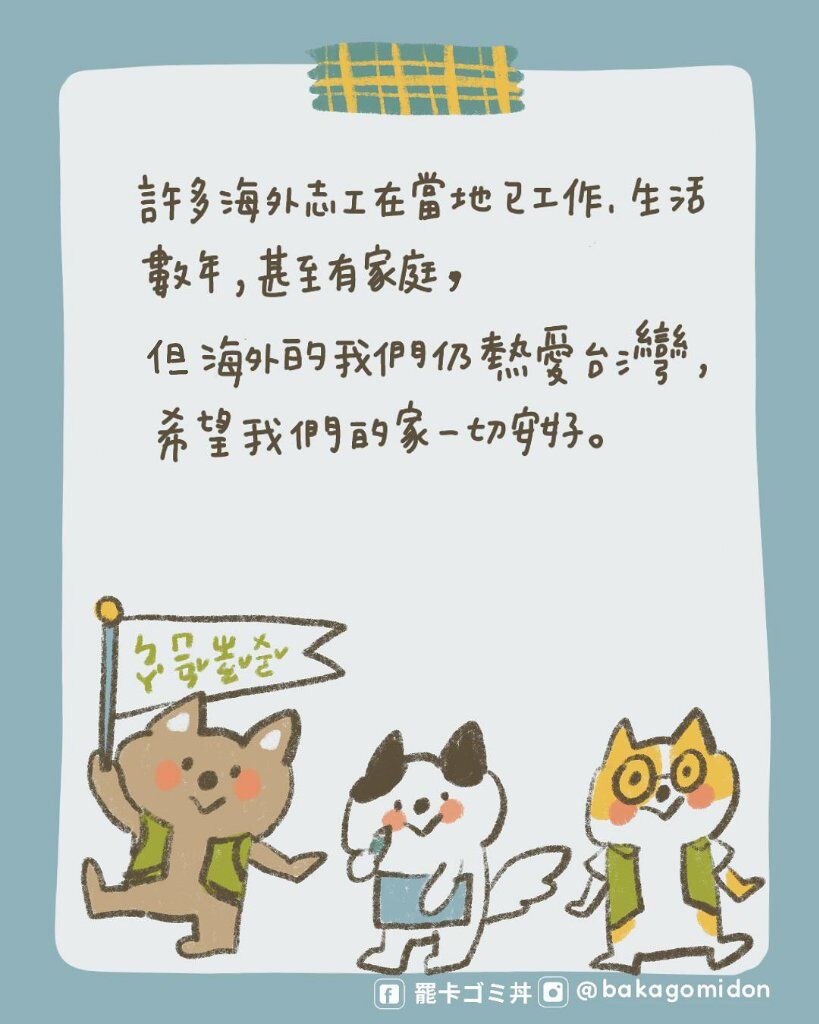 許多海外志工在當地已工作、生活
數年，甚至有家庭，
但海外的我們仍熱愛台灣，
希望我們的家一切安好。
罷卡ゴミ丼 @bakagomidon